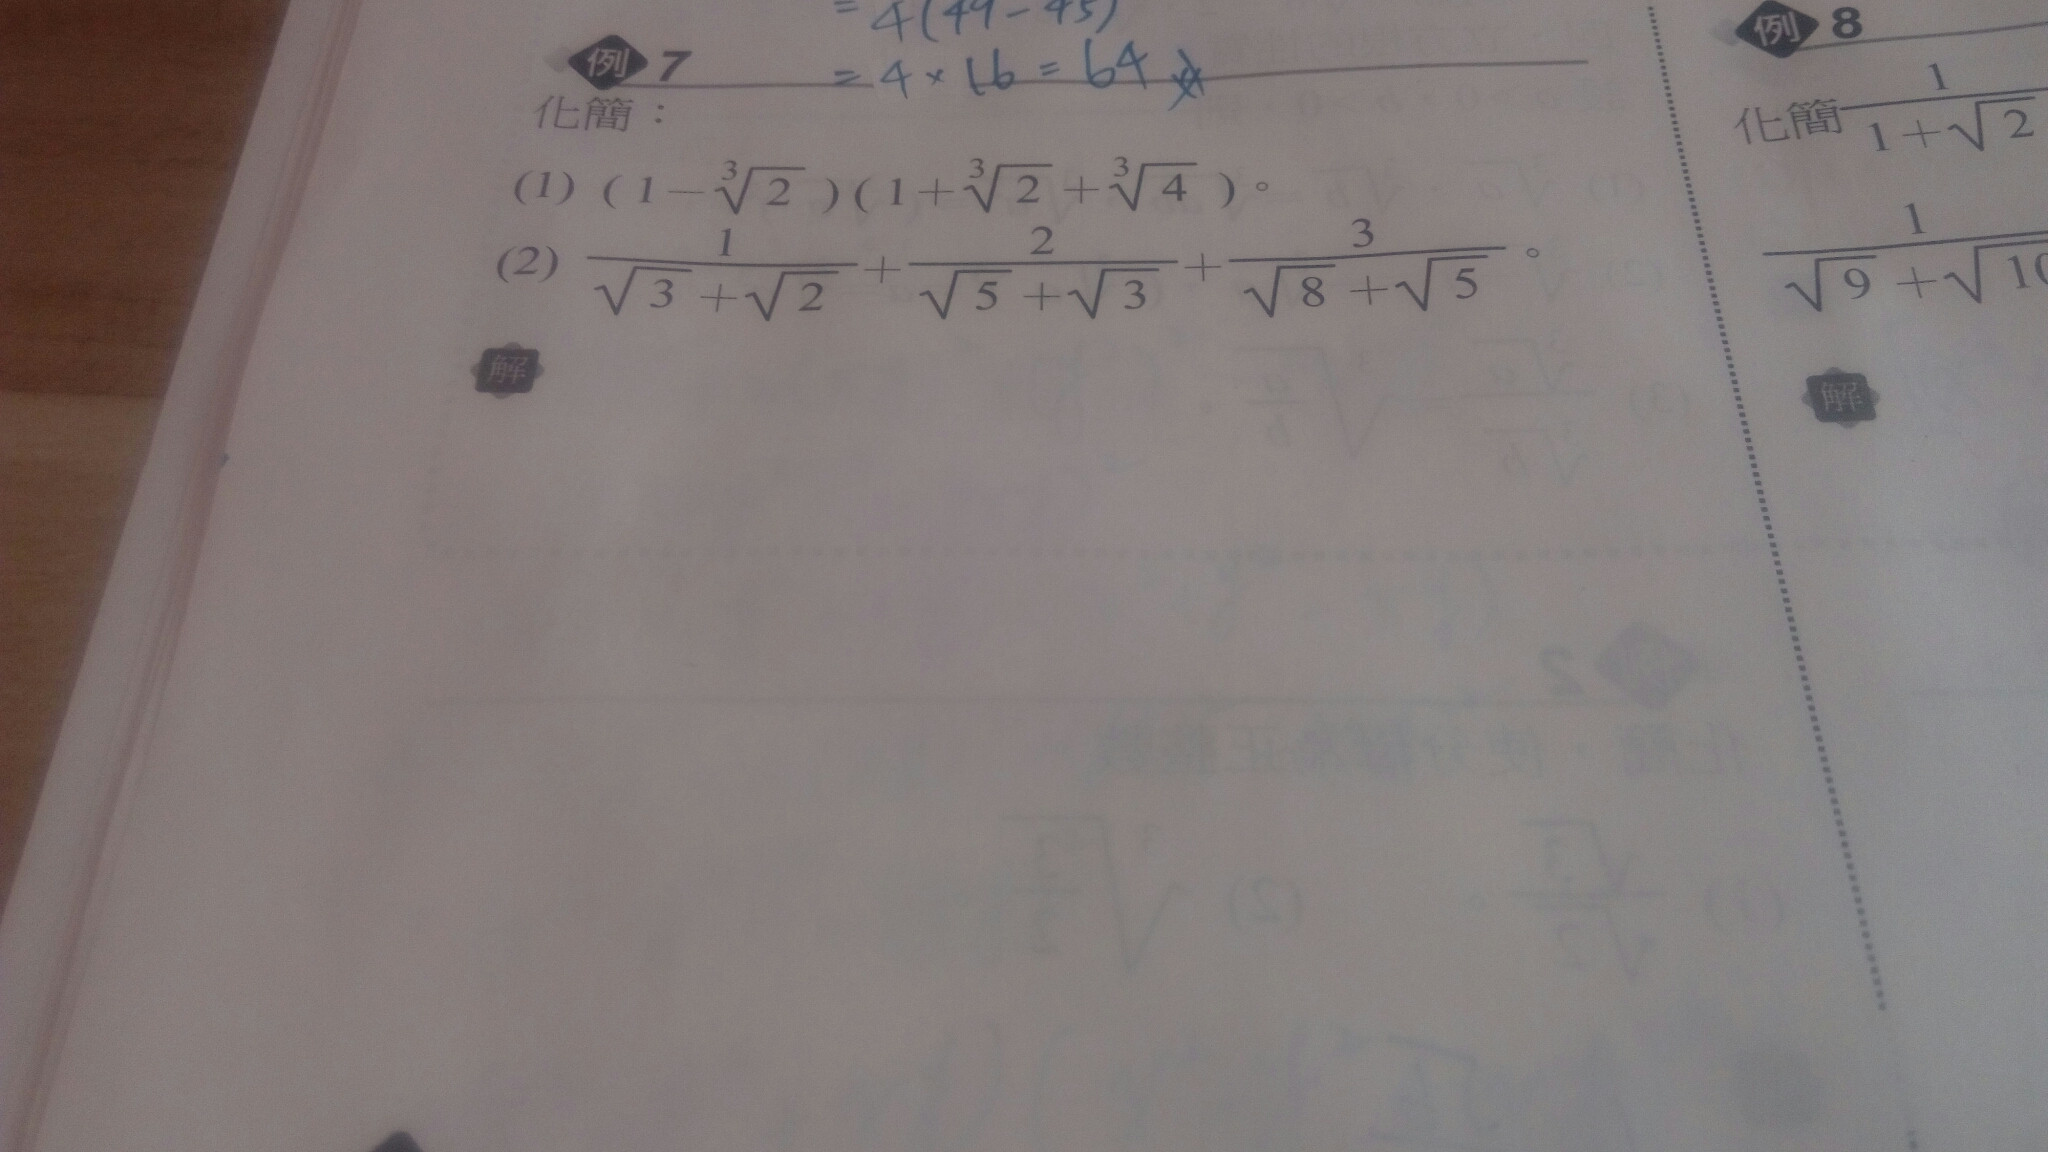 = 4(49-45)
例 7
= 4 × 16 = 64
化簡：
(1) (1-∛2)(1+∛2+∛4)。
(2) 1/(√3+√2) + 2/(√5+√3) + 3/(√8+√5)。
解
例 8
化簡 1/(1+√2
1/(√9+√10
解